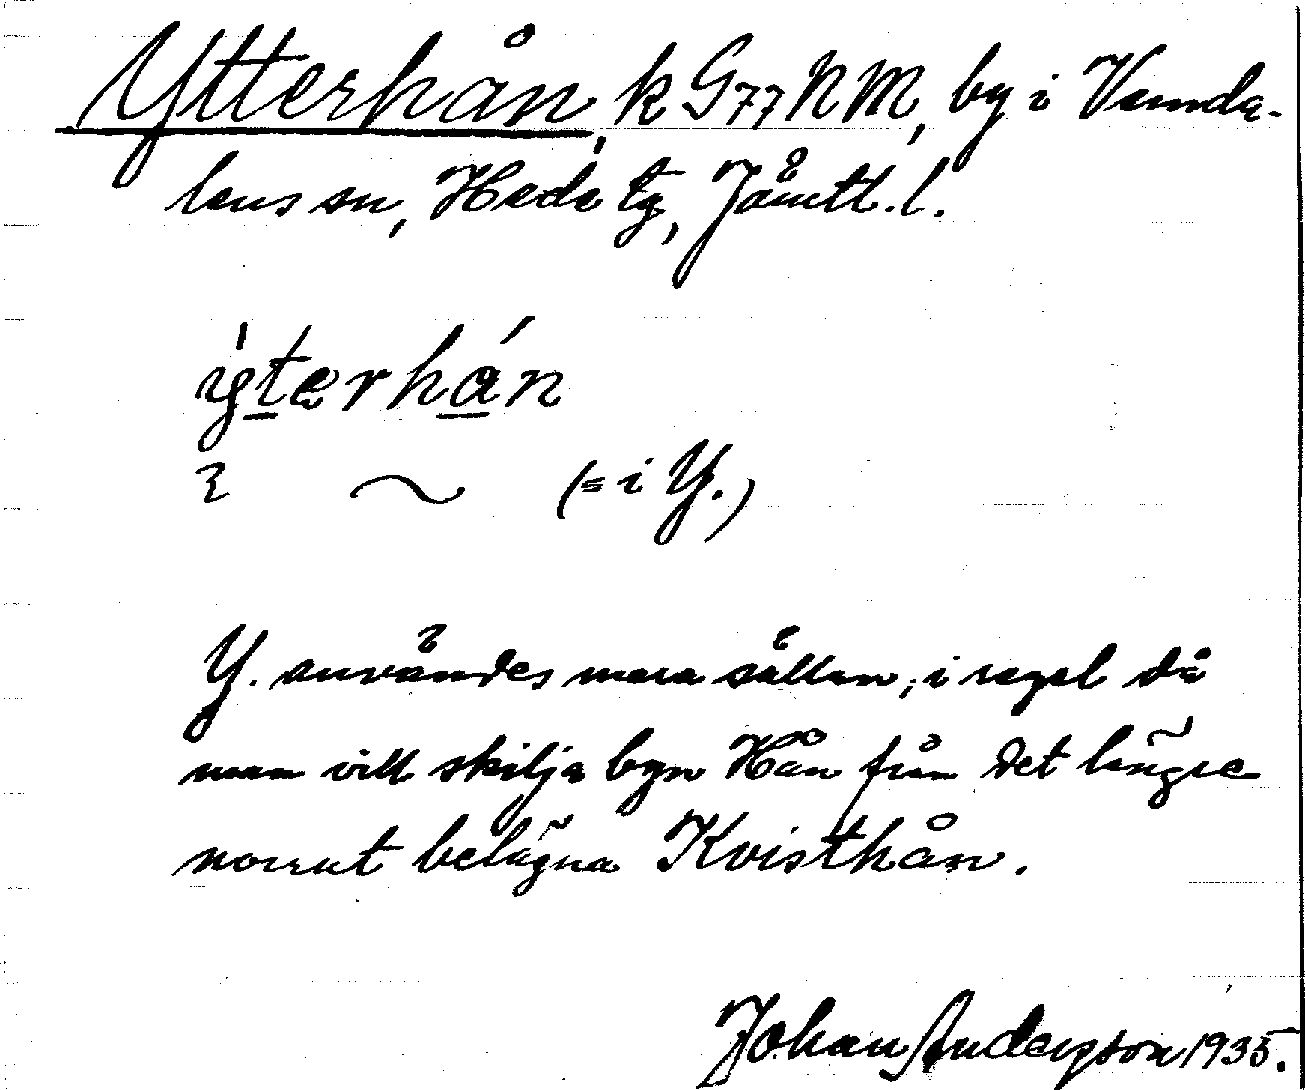 Ytterhån, k G 77 N M, by i Vemda-
lens sn, Hede tg, Jämtl. l.
ỳterhán
ɛ ~ (= i Y.)
Y. användes mera sällan, i regel då
man vill skilja byn Hån från det längre
norrut belägna Kvisthån.
Johan Anderson 1935.